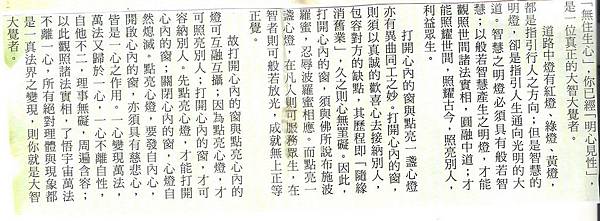 「無住生心」，你已經「明心見性」，
是一位真正的大智大覺者。
道路中燈有紅燈、綠燈、黃燈，
都是指引行人之方向；但是智慧的
明燈，卻是指引人生通向光明的大
道。智慧之明燈必須具有般若智
慧；以般若智慧產生之明燈，才能
觀照世間諸法實相，圓融中道；才
能照耀世間，照耀古今，照亮別人，
利益眾生。
打開心內的窗與點亮一盞心燈
亦有異曲同工之妙。打開心內的窗，
則須以真誠的歡喜心去接納別人，
包容對方的缺點，其歷程即「隨緣
消舊業」，久之則心無罣礙。因此，
打開心內的窗，須與佛所說布施波
羅蜜，忍辱波羅蜜相應。而點亮一
盞心燈，在凡人則可服務眾生，在
智者則可般若放光，成就無上正等
正覺。
故打開心內的窗與點亮心內的
燈可互融互攝；因為點亮心燈，才
可照亮別人；打開心內的窗，才可
容納別人。先點亮心燈，才能打開
心內的窗；關閉心內的窗，心燈自
然熄滅。點亮心燈，要發自內心，
開啟心內的窗，亦須具有慈悲心，
皆是一心之作用。一心變現萬法，
萬法又歸於一心，一心不離自性，
自他不二，理事無礙，周遍含容；
以此觀照諸法實相，了悟宇宙萬法
不離一心，所有絕對理體與現象都
是一真法界之變現，則你就是大智
大覺者。